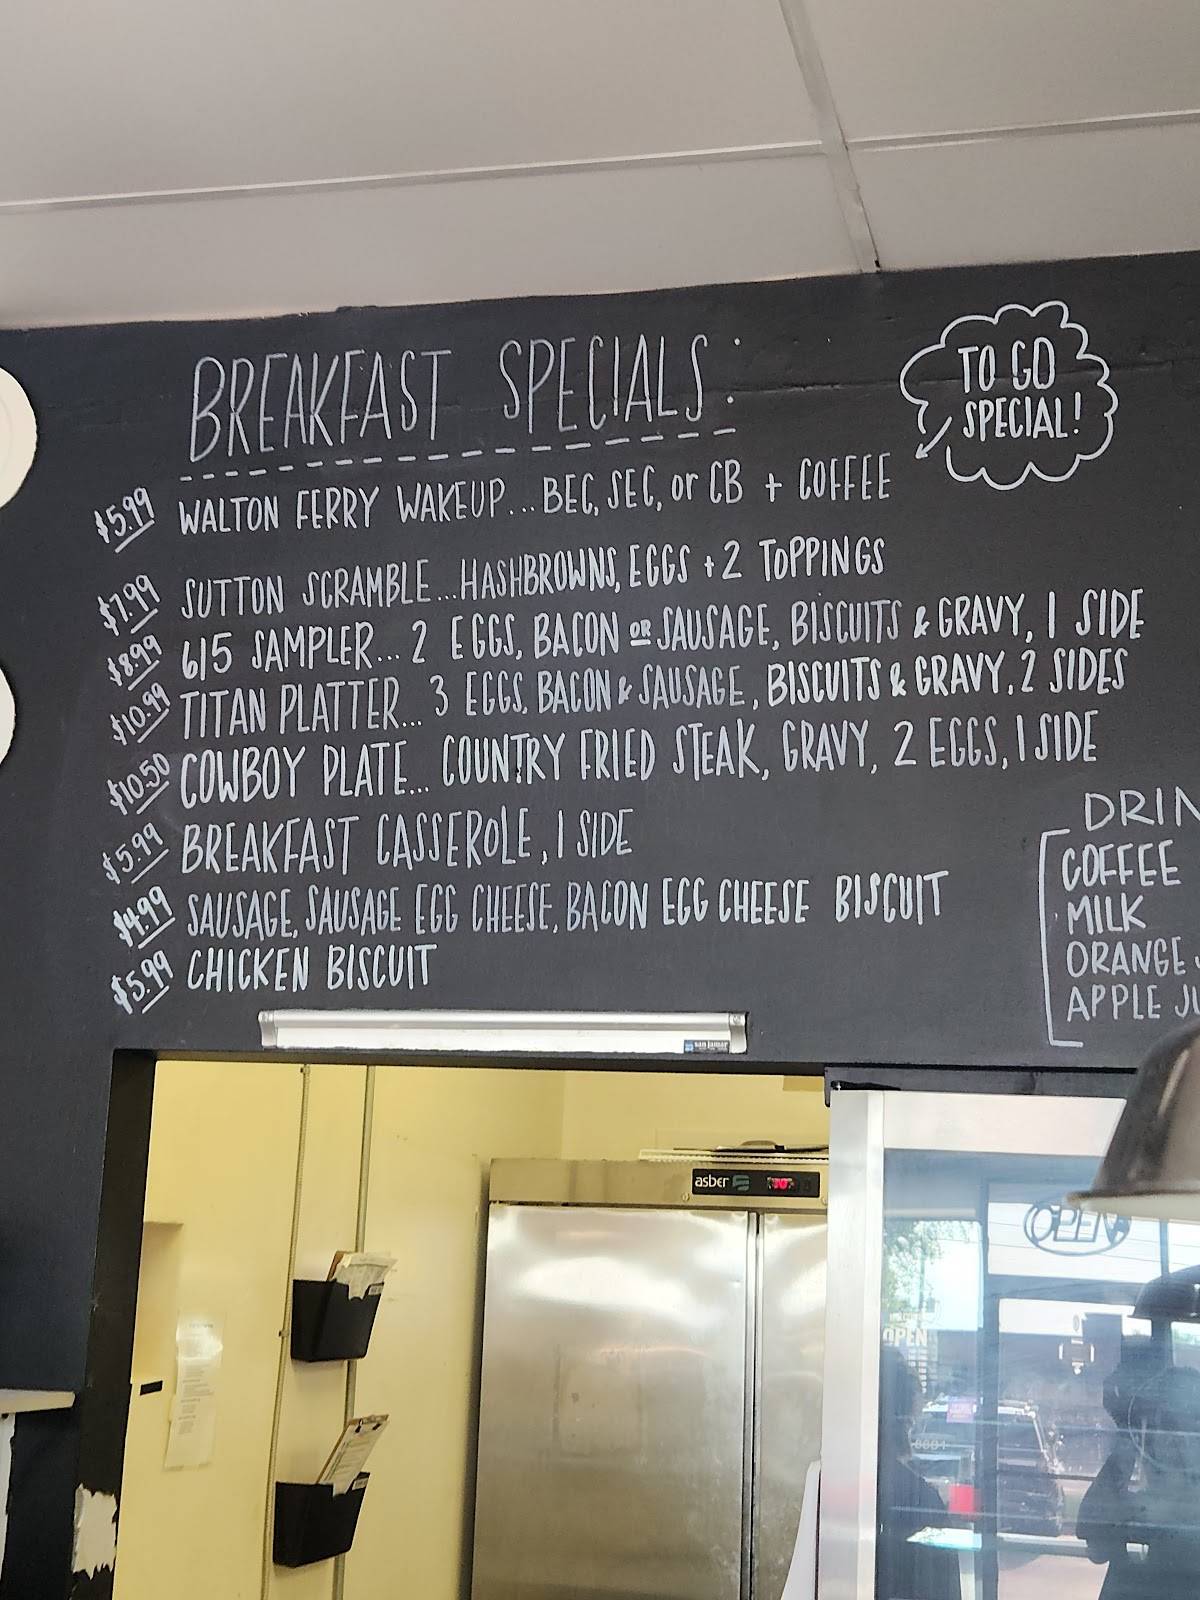 BREAKFAST SPECIALS:
TO GO
SPECIAL!
$5.99 WALTON FERRY WAKEUP... BEC, SEC, or CB + COFFEE
$7.99 SUTTON SCRAMBLE... HASHBROWNS, EGGS + 2 TOPPINGS
$8.99 615 SAMPLER... 2 EGGS, BACON OR SAUSAGE, BISCUITS & GRAVY, 1 SIDE
$10.99 TITAN PLATTER... 3 EGGS, BACON & SAUSAGE, BISCUITS & GRAVY, 2 SIDES
$10.50 COWBOY PLATE... COUNTRY FRIED STEAK, GRAVY, 2 EGGS, 1 SIDE
$5.99 BREAKFAST CASSEROLE, 1 SIDE
$4.99 SAUSAGE, SAUSAGE EGG CHEESE, BACON EGG CHEESE BISCUIT
$5.99 CHICKEN BISCUIT
DRIN
COFFEE
MILK
ORANGE J
APPLE JU
san jamar
asber
OPEN
OPEN